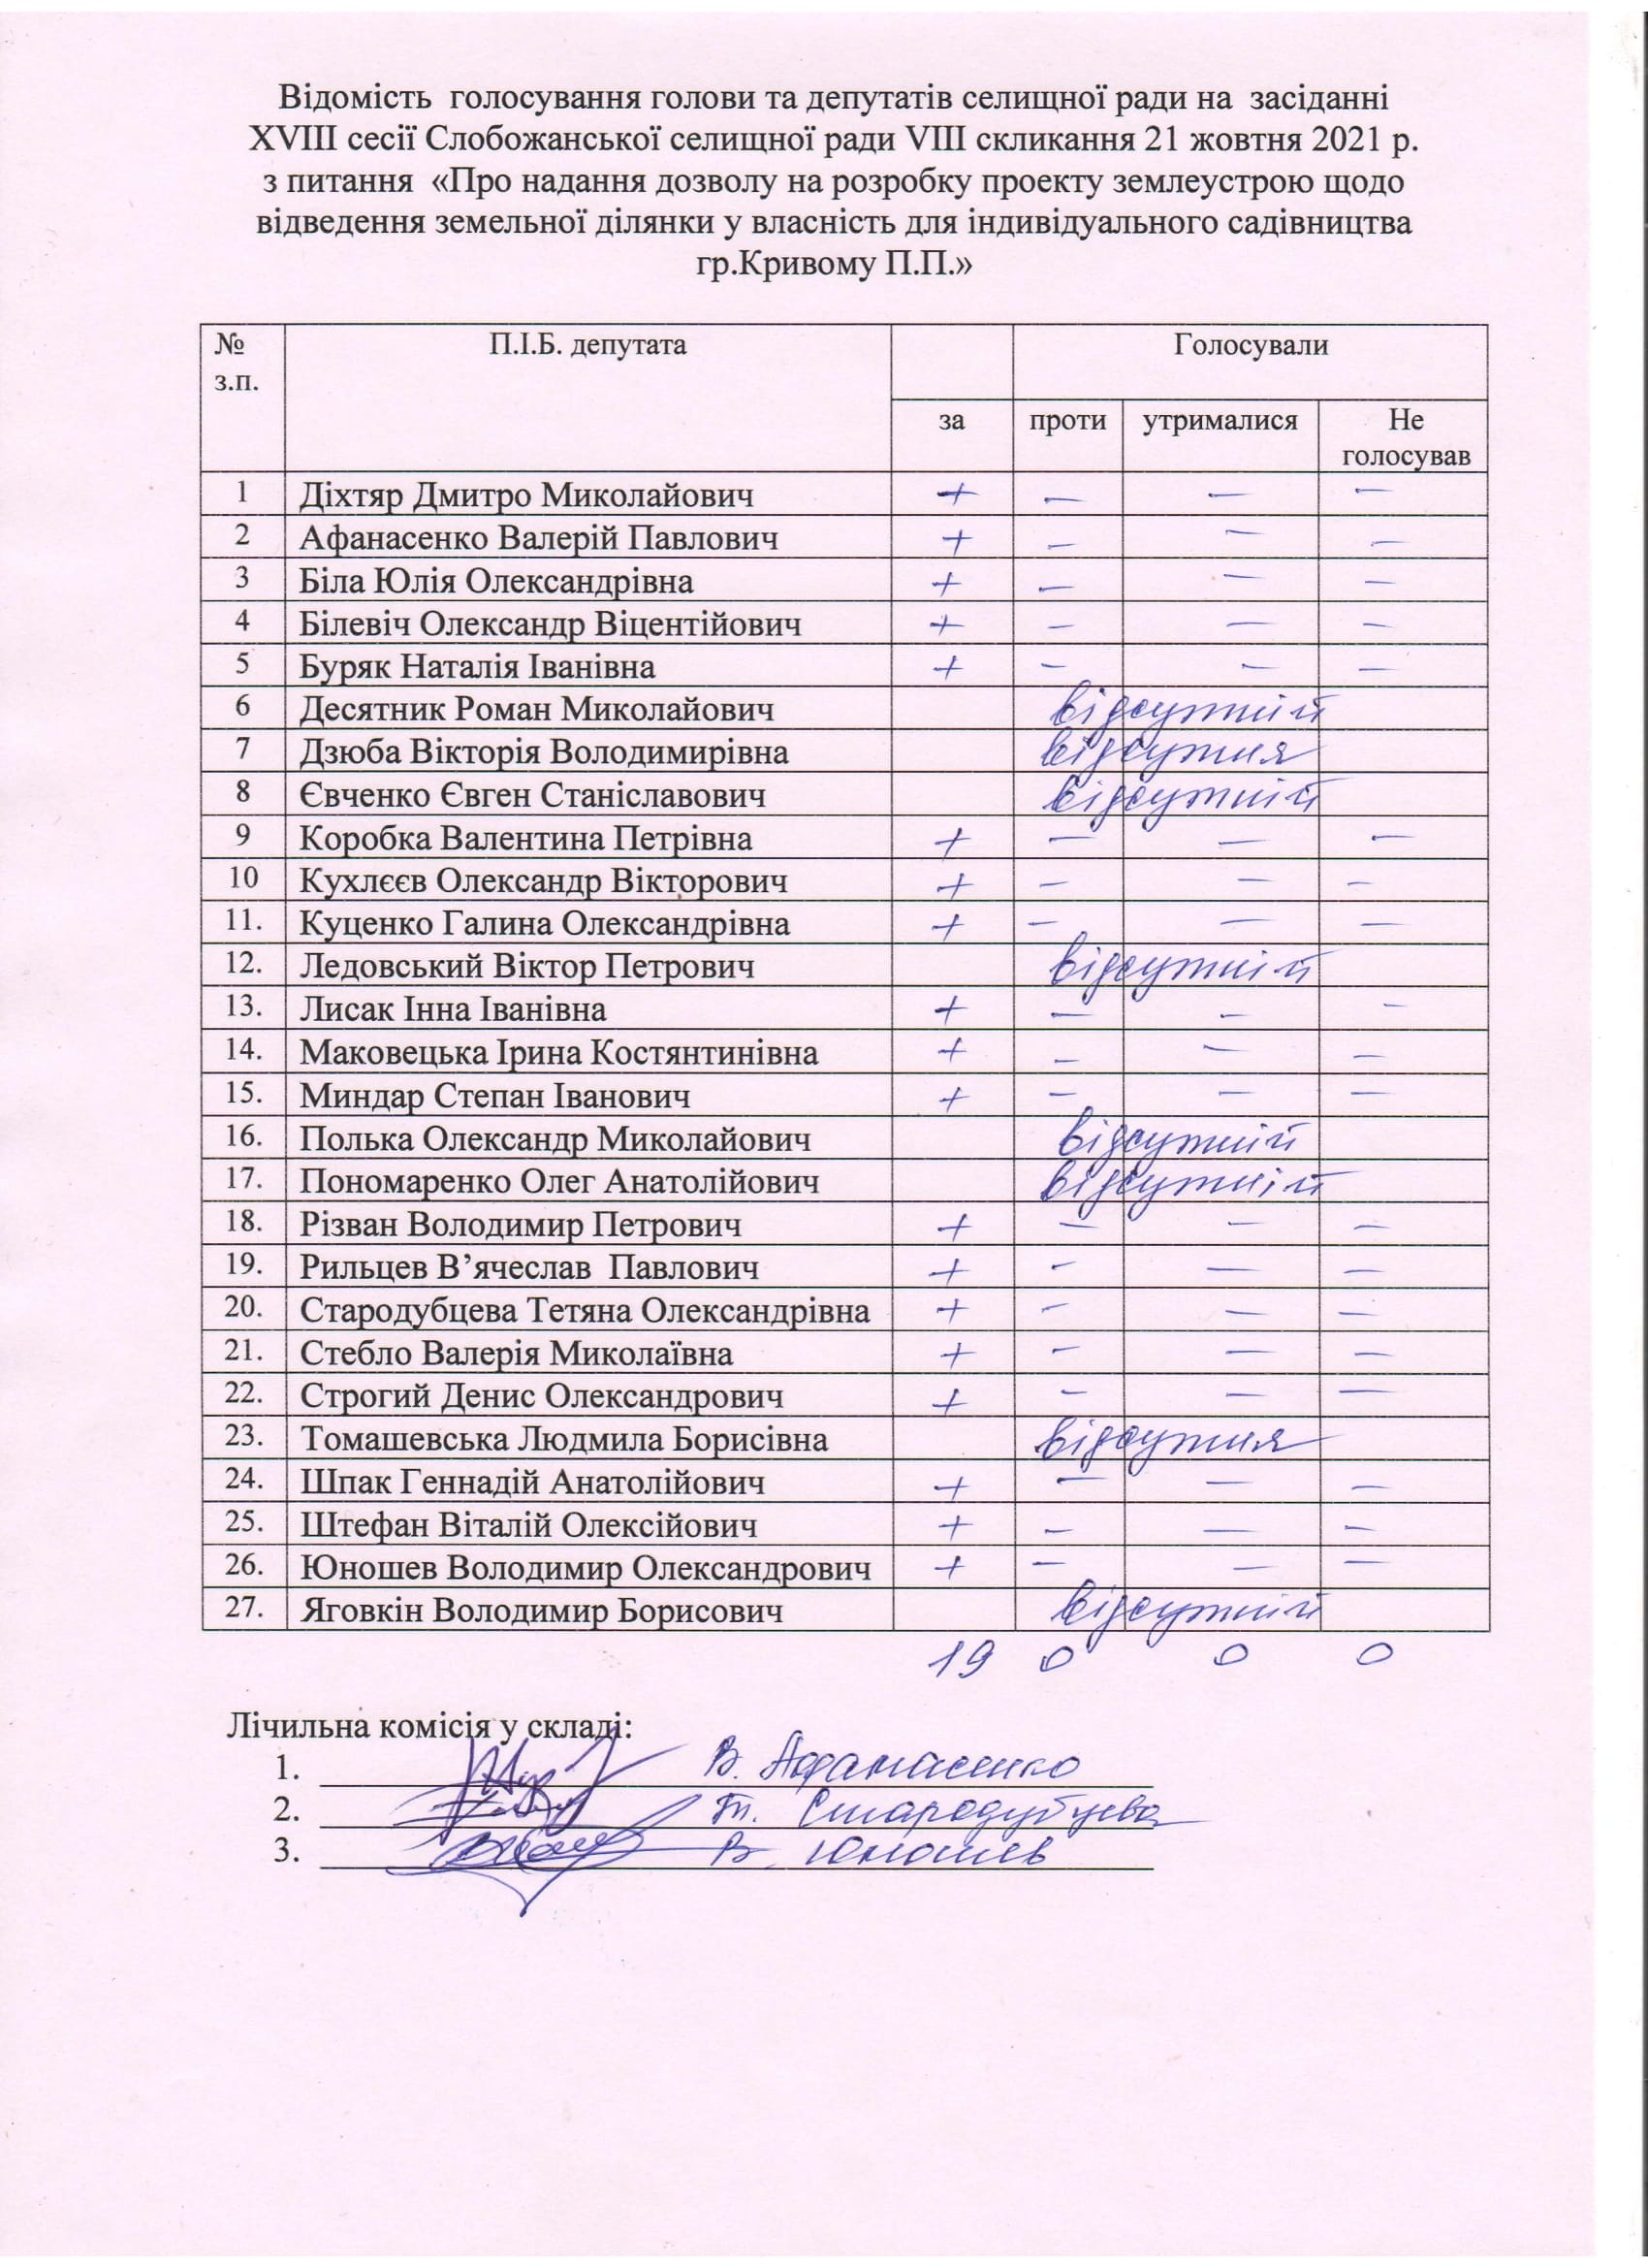 Відомість голосування голови та депутатів селищної ради на засіданні
XVIII сесії Слобожанської селищної ради VIII скликання 21 жовтня 2021 р.
з питання «Про надання дозволу на розробку проекту землеустрою щодо
відведення земельної ділянки у власність для індивідуального садівництва
гр.Кривому П.П.»
№ П.І.Б. депутата Голосували
з.п.
за проти утрималися Не
голосував
1 Діхтяр Дмитро Миколайович + – – –
2 Афанасенко Валерій Павлович + – – –
3 Біла Юлія Олександрівна + – – –
4 Білевіч Олександр Віцентійович + – – –
5 Буряк Наталія Іванівна + – – –
6 Десятник Роман Миколайович відсутній
7 Дзюба Вікторія Володимирівна відсутня
8 Євченко Євген Станіславович відсутній
9 Коробка Валентина Петрівна + – – –
10 Кухлєєв Олександр Вікторович + – – –
11. Куценко Галина Олександрівна + – – –
12. Ледовський Віктор Петрович відсутній
13. Лисак Інна Іванівна + – – –
14. Маковецька Ірина Костянтинівна + – – –
15. Миндар Степан Іванович + – – –
16. Полька Олександр Миколайович відсутній
17. Пономаренко Олег Анатолійович відсутній
18. Різван Володимир Петрович + – – –
19. Рильцев В’ячеслав Павлович + – – –
20. Стародубцева Тетяна Олександрівна + – – –
21. Стебло Валерія Миколаївна + – – –
22. Строгий Денис Олександрович + – – –
23. Томашевська Людмила Борисівна відсутня
24. Шпак Геннадій Анатолійович + – – –
25. Штефан Віталій Олексійович + – – –
26. Юношев Володимир Олександрович + – – –
27. Яговкін Володимир Борисович відсутній
19 0 0 0
Лічильна комісія у складі:
1. В. Афанасенко
2. Т. Стародубцева
3. В. Юношев